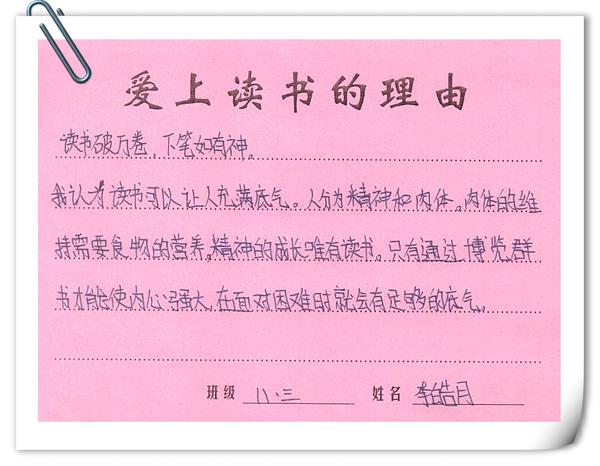 爱上读书的理由
读书破万卷，下笔如有神。
我认为读书可以让人充满底气。人分为精神和肉体。肉体的维
持需要食物的营养，精神的成长唯有读书。只有通过博览群
书才能使内心强大，在面对困难时就会有足够的底气。
班级 八.三 姓名 李皓月